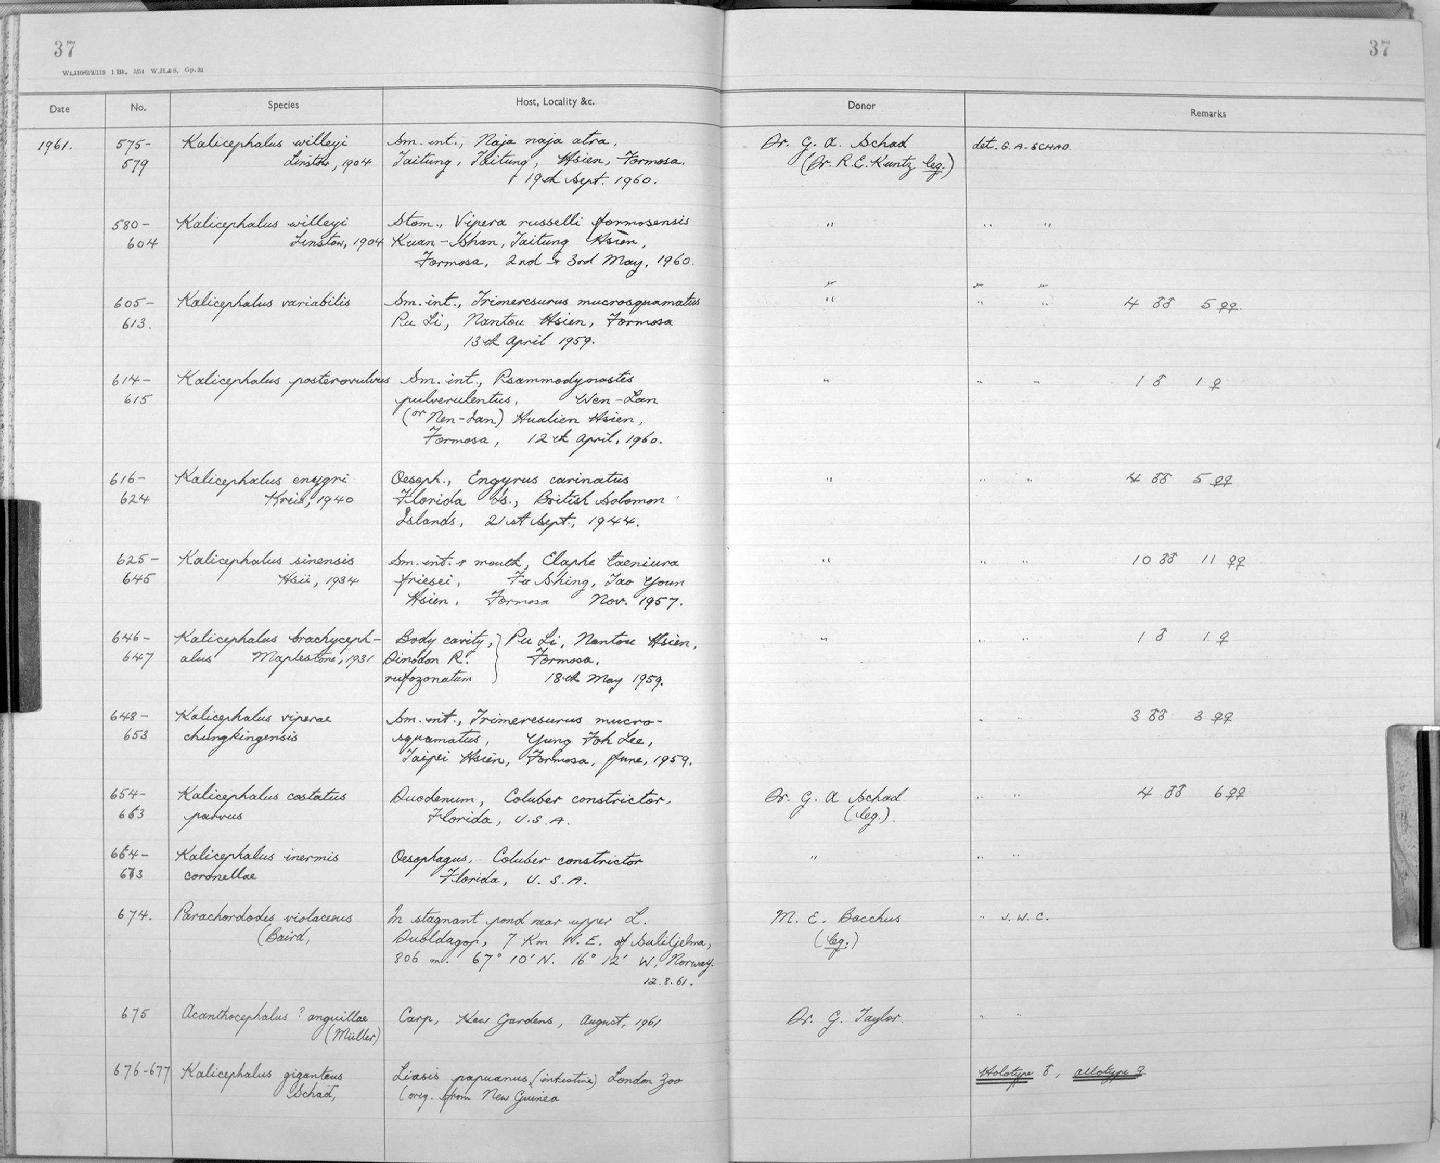 37
37
Date No. Species Host, Locality &c. Donor Remarks
1961. 575- Kalicephalus willeyi Sm. int., Naja naja atra, Dr. G. A. Schad det. G. A. SCHAD.
579 Linstow, 1904 Taitung, Taitung, Hsien, Formosa. (Dr. R. E. Kuntz leg.)
19th Sept. 1960.
580- Kalicephalus willeyi Stom., Vipera russelli formosensis " " "
604 Linstow, 1904 Kuan-Shan, Taitung Hsien,
Formosa, 2nd & 3rd May, 1960.
605- Kalicephalus variabilis Sm. int., Trimeresurus mucrosquamatus " " " 4 ♂♂ 5 ♀♀.
613. Pu Li, Nantou Hsien, Formosa
13th April 1959.
614- Kalicephalus posterovulvus Sm. int., Psammodynastes " " " 1 ♂ 1 ♀
615 pulverulentus, Wen-Lan
(or Nen-Lan) Hualien Hsien,
Formosa, 12th April, 1960.
616- Kalicephalus enygri Oesoph., Engyrus carinatus " " " 4 ♂♂ 5 ♀♀
624 Kreis, 1940 Florida Is., British Solomon
Islands, 21st Sept., 1944.
625- Kalicephalus sinensis Sm. int. & mouth, Elaphe taeniura " " " 10 ♂♂ 11 ♀♀
645 Hsü, 1934 friesei, Fa Shing, Tao Youn
Hsien, Formosa Nov. 1957.
646- Kalicephalus brachyceph- Body cavity, Pu Li, Nantou Hsien, " " " 1 ♂ 1 ♀
647 alus Maplestone, 1931 Dinodon R. Formosa,
rufozonatum 18th May 1959.
648- Kalicephalus viperae Sm. int., Trimeresurus mucro- " " 3 ♂♂ 3 ♀♀
653 chungkingensis squamatus, Yung Foh Lee,
Taipei Hsien, Formosa, June, 1959.
654- Kalicephalus costatus Duodenum, Coluber constrictor, Dr. G. A Schad " " 4 ♂♂ 6 ♀♀
663 parvus Florida, U.S.A. (leg.)
664- Kalicephalus inermis Oesophagus, Coluber constrictor " " "
673 coronellae Florida, U.S.A.
674. Parachordodes violaceous In stagnant pond near upper L. M. E. Bacchus " J. W. C.
(Baird, Duoldagop, 7 Km N.E. of Sulitjelma, (leg.)
806 m. 67° 10' N. 16° 12' W, Norway.
12.8.61.
675 Acanthocephalus ? anguillae Carp, Kew Gardens, August, 1961 Dr. G. Taylor. " "
(Müller)
676-677 Kalicephalus giganteus Liasis papuanus (intestine) London Zoo Holotype ♂, allotype ♀
Schad, (orig. from New Guinea